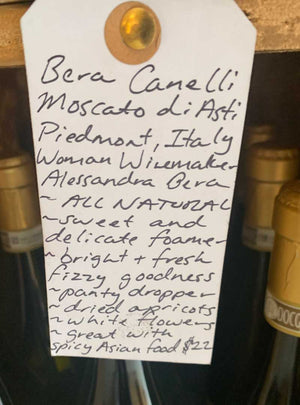 Bera Canelli
Moscato di Asti
Piedmont, Italy
Woman Winemaker
Alessandra Bera
~ ALL NATURAL
~ sweet and
delicate foamer
~ bright + fresh
fizzy goodness
~ panty dropper
~ dried apricots
~ white flowers
~ great with
spicy Asian food $22
DOCG